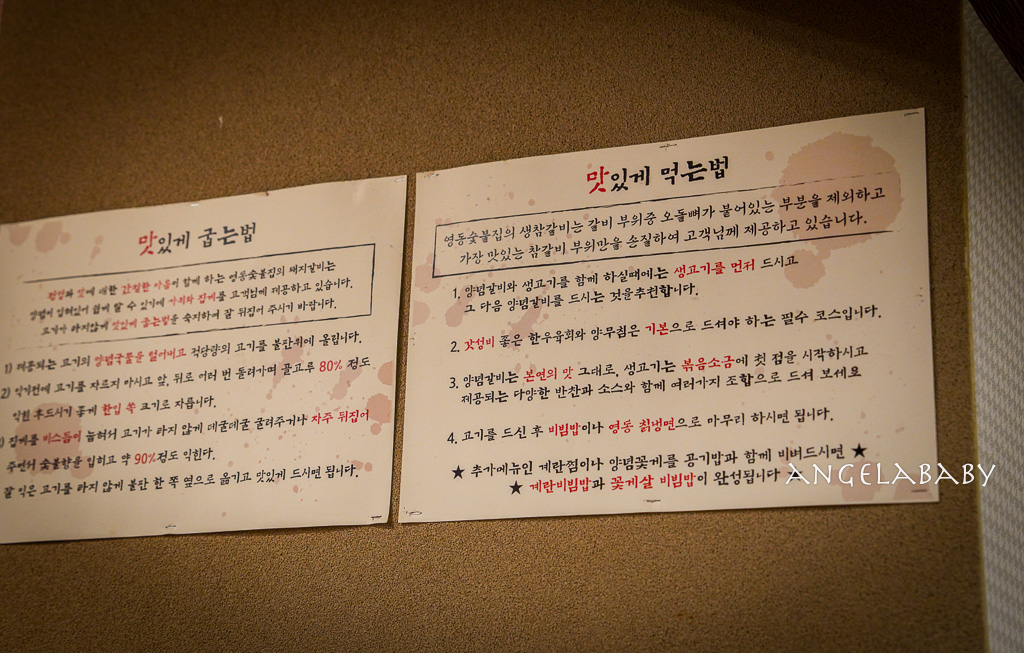 맛있게 굽는법
정성과 맛에 대한 간절한 마음이 함께 하는 영동숯불집의 돼지갈비는
양념이 입혀있어 쉽게 탈 수 있기에 가위와 집게를 고객님께 제공하고 있습니다.
고기가 타지않게 맛있게 굽는법을 숙지하여 잘 뒤집어 주시기 바랍니다.
1) 제공되는 고기의 양념국물을 털어버고 적당량의 고기를 불판위에 올립니다.
2) 익기전에 고기를 자르지 마시고 앞, 뒤로 여러 번 돌려가며 골고루 80% 정도
익힌 후드시기 좋게 한입 쏙 크기로 자릅니다.
) 집게를 비스듬이 눕혀서 고기가 타지 않게 데굴데굴 굴려주거나 자주 뒤집어
주면서 숯불향을 입히고 약 90%정도 익힌다.
잘 익은 고기를 타지 않게 불판 한 쪽 옆으로 옮기고 맛있게 드시면 됩니다.
맛있게 먹는법
영동숯불집의 생참갈비는 갈비 부위중 오돌뼈가 붙어있는 부분을 제외하고
가장 맛있는 참갈비 부위만을 손질하여 고객님께 제공하고 있습니다.
1. 양념갈비와 생고기를 함께 하실때에는 생고기를 먼저 드시고
그 다음 양념갈비를 드시는 것을추천합니다.
2. 갓성비 좋은 한우육회와 양무침은 기본으로 드셔야 하는 필수 코스입니다.
3. 양념갈비는 본연의 맛 그대로, 생고기는 볶음소금에 첫 점을 시작하시고
제공되는 다양한 반찬과 소스와 함께 여러가지 조합으로 드셔 보세요
4. 고기를 드신 후 비빔밥이나 영동 칡냉면으로 마무리 하시면 됩니다.
★ 추가메뉴인 계란찜이나 양념꽃게를 공기밥과 함께 비벼드시면 ★
★ 계란비빔밥과 꽃게살 비빔밥이 완성됩니다 ★
ANGELABABY